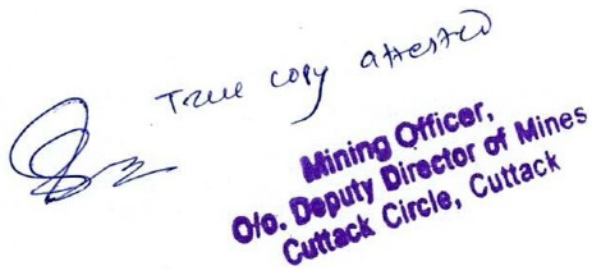 True copy attested
Mining Officer,
O/o. Deputy Director of Mines
Cuttack Circle, Cuttack